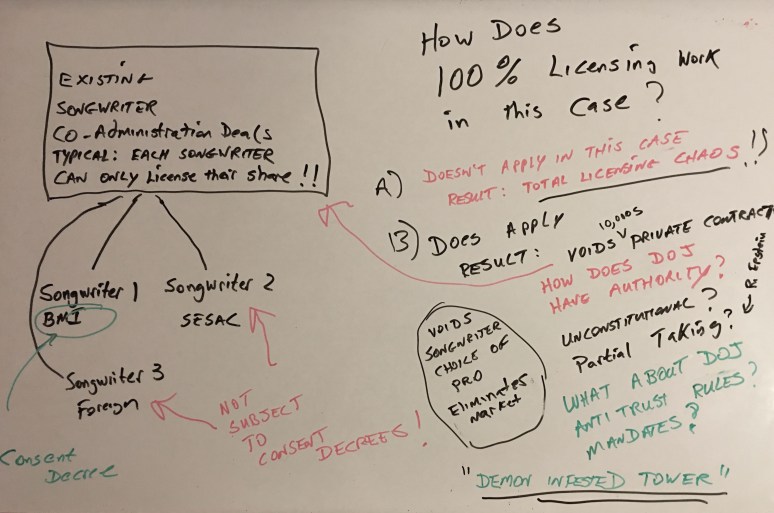 EXISTING
SONGWRITER
CO-Administration Deals
TYPICAL: EACH SONGWRITER
CAN ONLY LICENSE their share!!
Songwriter 1
BMI
Songwriter 2
SESAC
Songwriter 3
Foreign
Consent
Decree
NOT
SUBJECT
TO
CONSENT
DECREES!
How Does
100% Licensing Work
in this Case?
A) DOESN'T APPLY IN THIS CASE
RESULT: TOTAL LICENSING CHAOS!!
B) Does APPLY
10,000s
RESULT: VOIDS PRIVATE CONTRACT
HOW DOES DOJ
HAVE AUTHORITY?
UNCONSTITUTIONAL?
Partial Taking? ← R Epstein
WHAT ABOUT DOJ
ANTI TRUST RULES?
MANDATES?
VOIDS
SONGWRITER
CHOICE OF
PRO
Eliminates
market
"DEMON INFESTED TOWER"